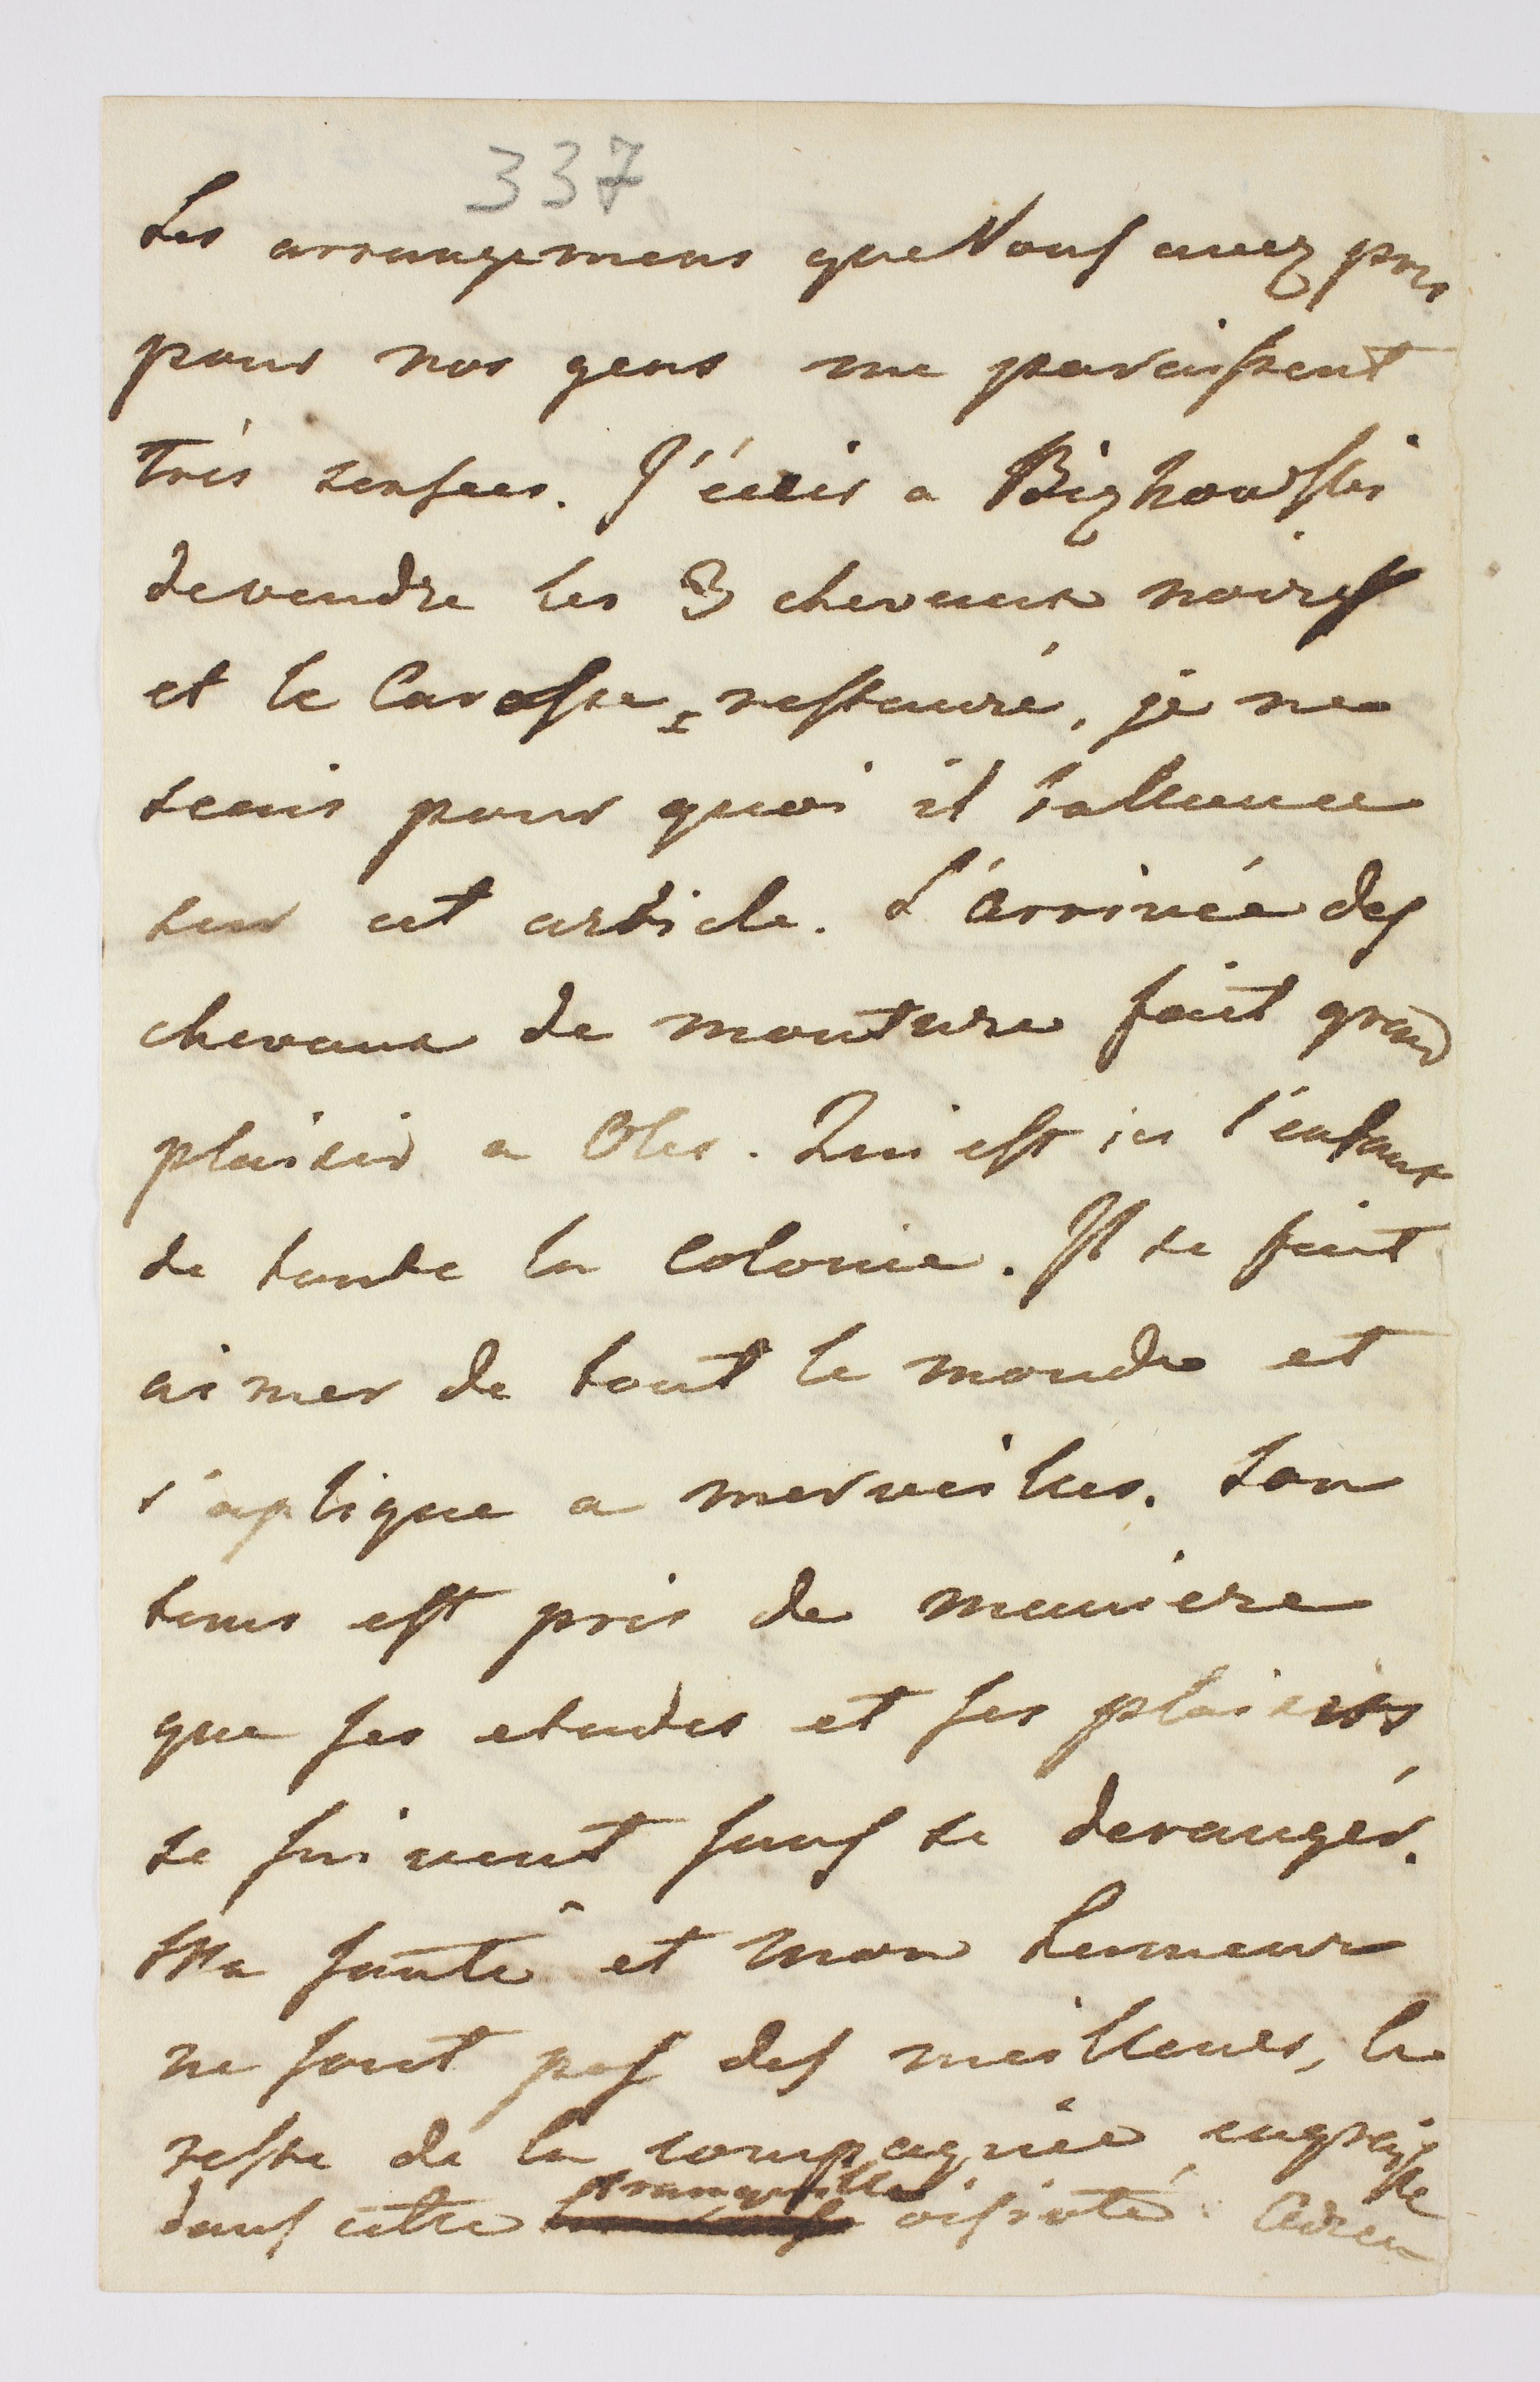 337
Les arrangemens que Vous avez pris
pour nos gens me paraissent
très sensees. J'écris a
de vendre les 3 chevaux noires
et le Carosse restauré, je ne
scais pour quoi il
sur cet article. L'arrivée des
chevaux de monture fait grand
plaisir a Oles. Qui est ici l'enfant
de toute la Colonie. Il se fait
aimer de tout le monde et
s'aplique a merveilles. Son
tems est pris de maniere
que ses etudes et ses plaisirs
se suivent sans se deranger.
Ma santé et mon humeur
ne sont pas des meilleures, le
reste de la compagnie engraisse
dans cette tranquille oisiveté. Adieu